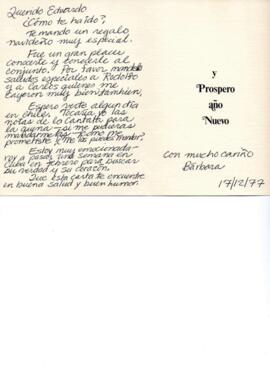 Querido Eduardo
¿Cómo te ha ido?,
Te mando un regalo
navideño muy especial.
Fue un gran placer
conocerte y conocerle al
conjunto. Por favor manda
saludos especiales a Rodolfo
y a Carlos quienes me
cayeron muy bien tambien.
Espero verte algun día
en Chile. Tocaría yo las
notas de la Cantata para
la quena - si me pudieras
mandarmelas - como me
prometiste
Estoy muy emocionada -
voy a pasar una semana en
Cuba en febrero para buscar
su verdad y su corazón.
Que esta carta te encuentre
en buena salud y buen humor
y
Prospero
año
Nuevo
con mucho cariño
Bárbara
17/12/77